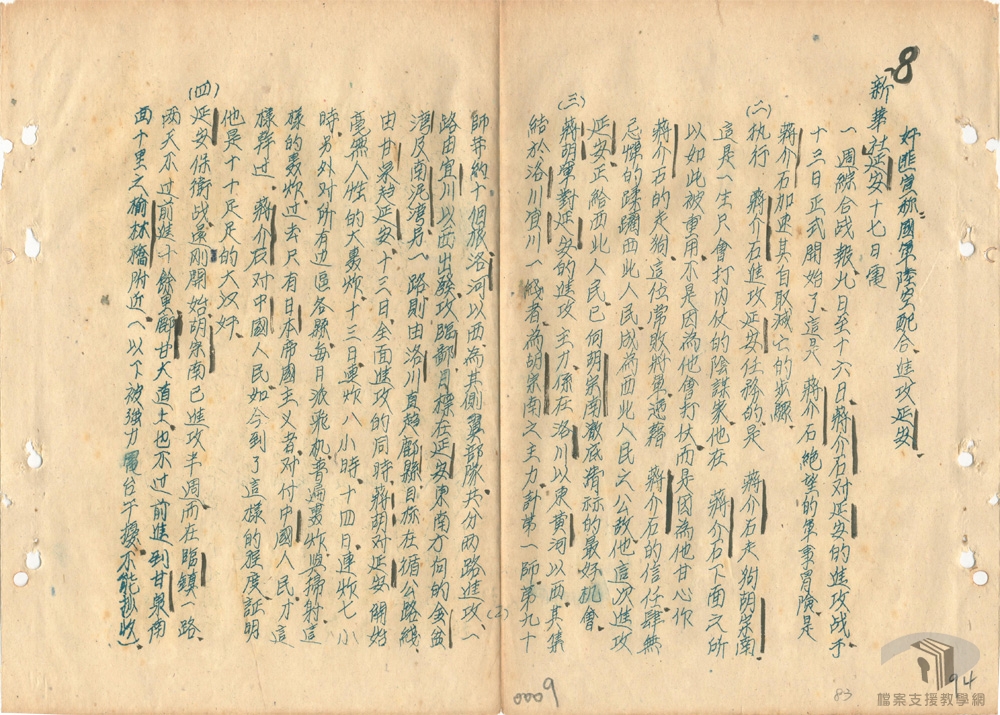 8
奸匪宣称國軍陸空配合進攻延安
新華社延安十七日電
一週綜合战報，九日至十六日，蔣介石对延安的進攻战于
十三日正式開始了，這是 蔣介石絶望的軍事冒險，是
蔣介石加速其自取滅亡的步驟。
(二)执行 蔣介石進攻延安任務的，是 蔣介石走狗胡宗南，
這是一生只會打内仗的陰謀家，他在 蔣介石下面之所
以如此被重用，不是因為他會打仗，而是因為他甘心作
蔣介石的走狗，這位常敗將軍，憑藉 蔣介石的信任，肆無
忌憚的蹂躪西北人民，成為西北人民之公敌，他這次進攻
延安，正給西北人民已向胡宗南澈底清祘的最好机會。
(三)蔣胡軍對延安的進攻，主力係在洛川以東，黄河以西，其集
結於洛川宜川一綫者，為胡宗南之主力，計第一師，第九十
師等約十個旅，洛河以西為其側翼部隊，共分两路進攻，一
路由宜川以西出發，攻臨鄜，目標在延安東南方向的金盆
湾及南泥湾，另一路則由洛川直趋鄜縣，目标在循公路綫
由甘泉趋延安，十三日全面進攻的同時，蔣胡对延安開始
毫無人性的大轰炸，十三日連炸八小時，十四日連炸七小
時，另外对所有边區各縣，每日派飛机普遍轰炸與掃射，這
樣的轰炸，过去只有日本帝國主义者对付中國人民，才這
樣幹过，蔣介石对中國人民如今到了這樣的程度，証明
他是十十足足的大汉奸。
(四)延安保衛战，還剛開始，胡宗南已進攻半週，而在臨鎮一路，
两天不过前進十餘里，鄜甘大道上，也不过前進到甘泉南
面十里之榆林橋附近(以下被強力電台干擾，不能抄收)
(2)
0009
83
94
檔案支援教學網